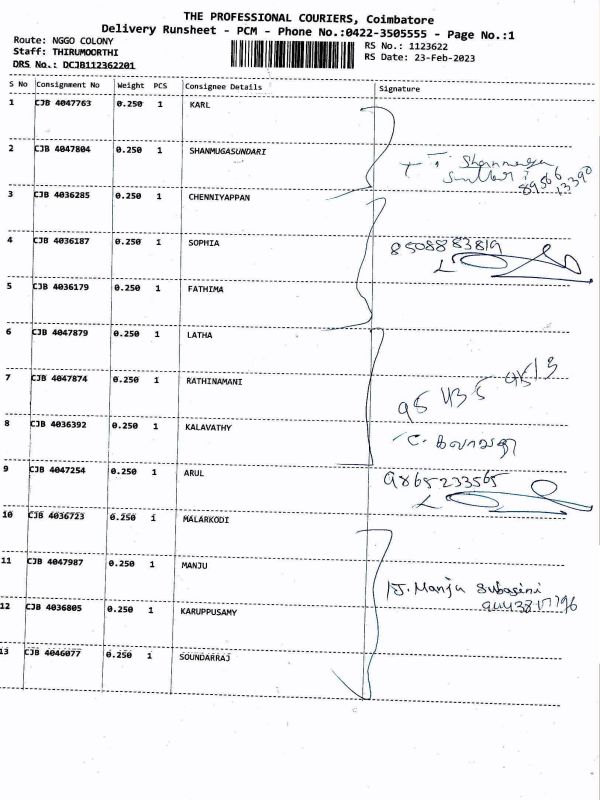 THE PROFESSIONAL COURIERS, Coimbatore
Delivery Runsheet - PCM - Phone No.:0422-3505555 - Page No.:1
Route: NGGO COLONY RS No.: 1123622
Staff: THIRUMOORTHI RS Date: 23-Feb-2023
DRS No.: DCJB112362201
S No Consignment No Weight PCS Consignee Details Signature
1 CJB 4047763 0.250 1 KARL
2 CJB 4047804 0.250 1 SHANMUGASUNDARI
3 CJB 4036285 0.250 1 CHENNIYAPPAN
4 CJB 4036187 0.250 1 SOPHIA 8508883819
5 CJB 4036179 0.250 1 FATHIMA
6 CJB 4047879 0.250 1 LATHA
7 CJB 4047874 0.250 1 RATHINAMANI
8 CJB 4036392 0.250 1 KALAVATHY
9 CJB 4047254 0.250 1 ARUL 9865233565
10 CJB 4036723 0.250 1 MALARKODI
11 CJB 4047987 0.250 1 MANJU J. Manju Subasini
12 CJB 4036805 0.250 1 KARUPPUSAMY
13 CJB 4046077 0.250 1 SOUNDARRAJ